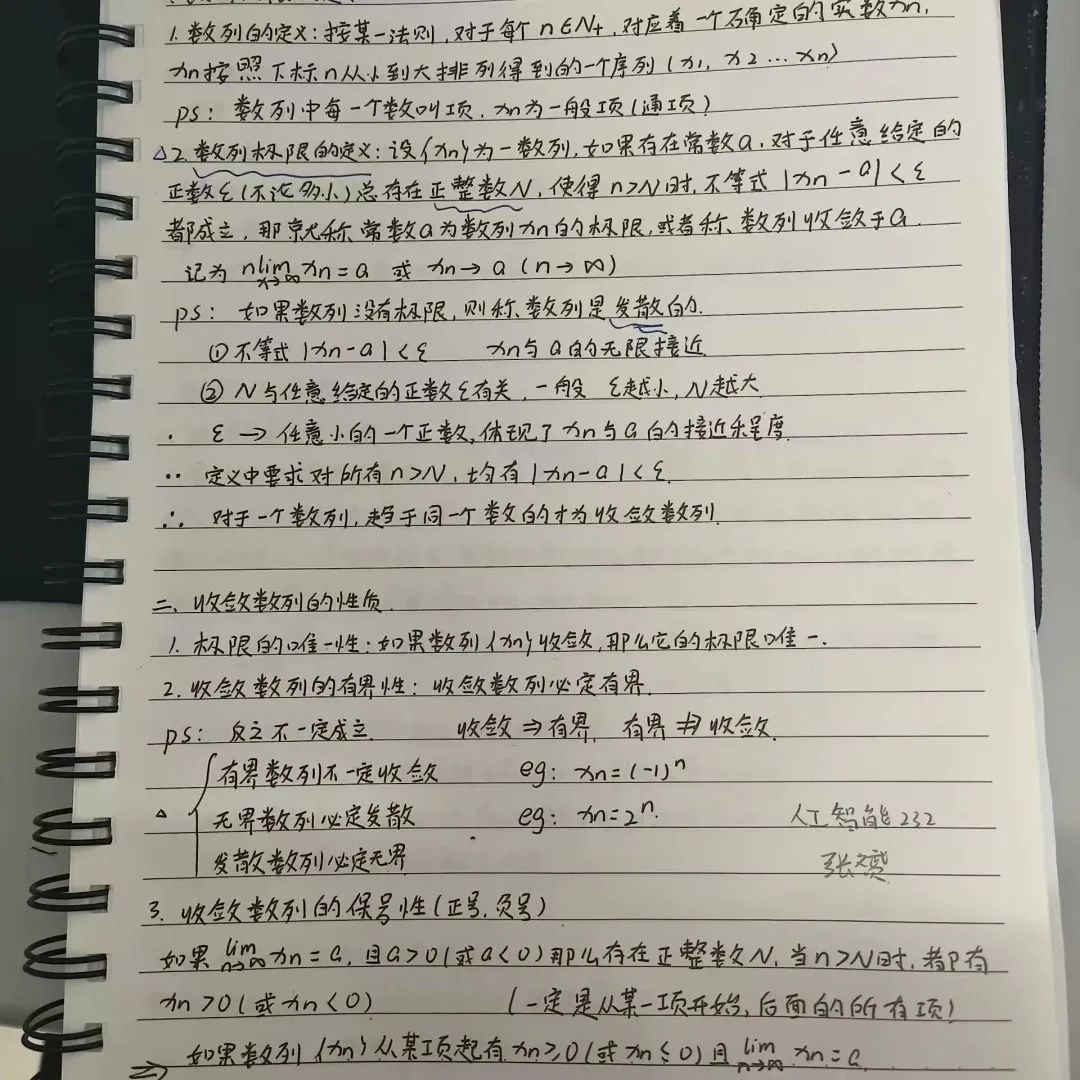 1. 数列的定义:按某一法则,对于每个 n∈N+,对应着一个确定的实数xn,
xn按照下标n从小到大排列得到的一个序列(x1, x2 … xn)
ps: 数列中每一个数叫项, xn为一般项(通项)
△2. 数列极限的定义:设{xn}为一数列,如果存在常数a,对于任意给定的
正数ε(不论多小)总存在正整数N,使得 n>N时,不等式 |xn-a|<ε
都成立,那就称常数a为数列xn的极限,或者称数列收敛于a.
记为 lim n→∞ xn=a 或 xn→a (n→∞)
ps: 如果数列没有极限,则称数列是发散的.
① 不等式 |xn-a|<ε xn与a的无限接近
② N与任意给定的正数ε有关,一般 ε越小,N越大
· ε → 任意小的一个正数,体现了xn与a的接近程度.
·· 定义中要求对所有n>N,均有|xn-a|<ε.
∴ 对于一个数列,趋于同一个数的才为收敛数列.
二、收敛数列的性质.
1. 极限的唯一性:如果数列{xn}收敛,那么它的极限唯一.
2. 收敛数列的有界性:收敛数列必定有界.
ps: 反之不一定成立. 收敛⇒有界, 有界⇏收敛.
有界数列不一定收敛 eg: xn=(-1)^n
△ 无界数列必定发散 eg: xn=2^n. 人工智能232
发散数列必定无界 张
3. 收敛数列的保号性(正号,负号)
如果 lim n→∞ xn=a, 且a>0(或a<0)那么存在正整数N,当n>N时,都有
xn>0(或xn<0) (一定是从某一项开始,后面的所有项)
⇒ 如果数列{xn}从某项起有xn≥0(或xn≤0)且 lim n→∞ xn=a